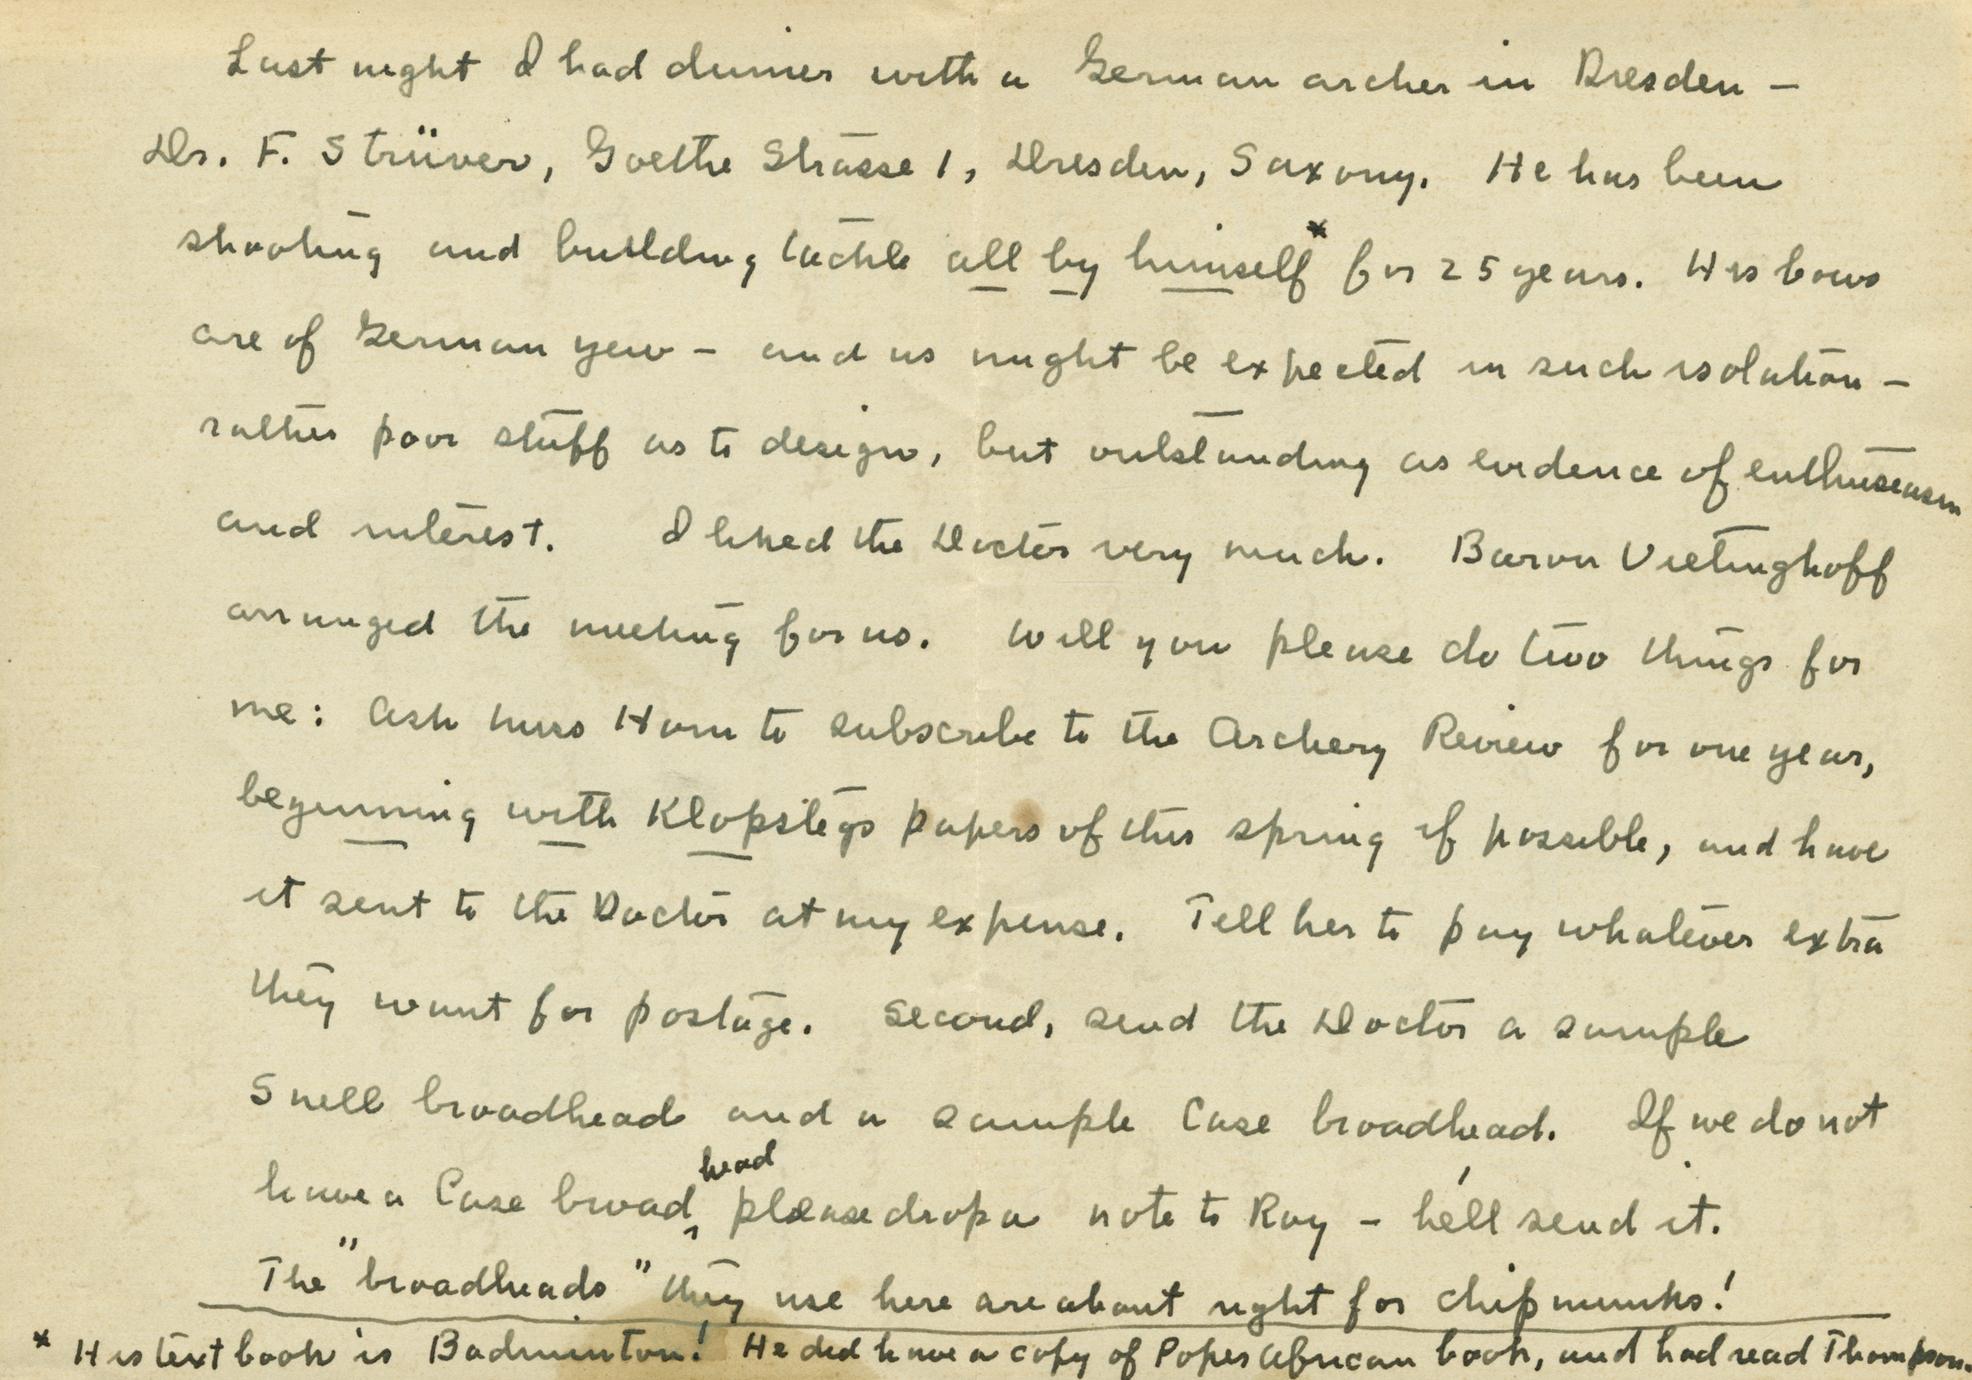 Last night I had dinner with a German archer in Dresden -
Dr. F. Strüver, Goethe Strasse 1, Dresden, Saxony. He has been
shooting and building tackle all by himself* for 25 years. His bows
are of German yew - and as might be expected in such isolation -
rather poor stuff as to design, but outstanding as evidence of enthusiasm
and interest. I liked the Doctor very much. Baron Vietinghoff
arranged the meeting for us. Will you please do two things for
me: Ask Miss Horn to subscribe to the Archery Review for one year,
beginning with Klopstegs papers of this spring if possible, and have
it sent to the Doctor at my expense. Tell her to pay whatever extra
they want for postage. Second, send the Doctor a sample
Snell broadhead and a sample Case broadhead. If we do not
have a Case broadhead please drop a note to Roy - he'll send it.
The "broadheads" they use here are about right for chipmunks!
* His textbook is Badminton! He did have a copy of Popes African book, and had read Thompson.